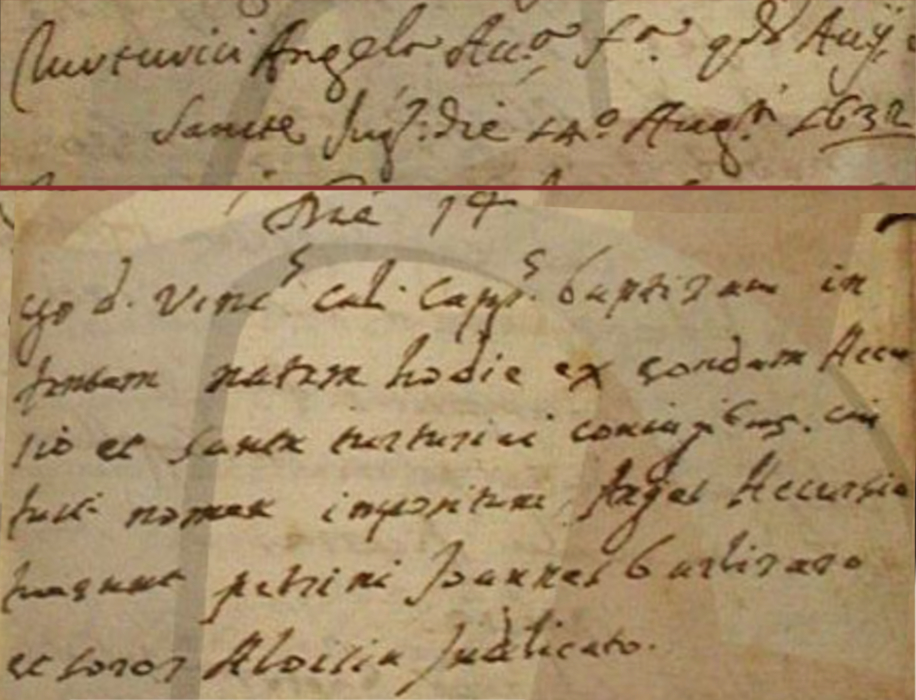 Turturici Angela Acc.a f.a qd Acc.
Sancte Jug: die 14.o Aug.ti 1632
Die 14
ego d. Vinc.s cal. Capp.s baptizavi in
fantem natam hodie ex quondam Accu
sio et Sancta turturici coniugibus. cui
fuit nomen impositum Angela Accursia
fuerunt petrini Joannes barbiraro
et soror Aloisia Judicato.